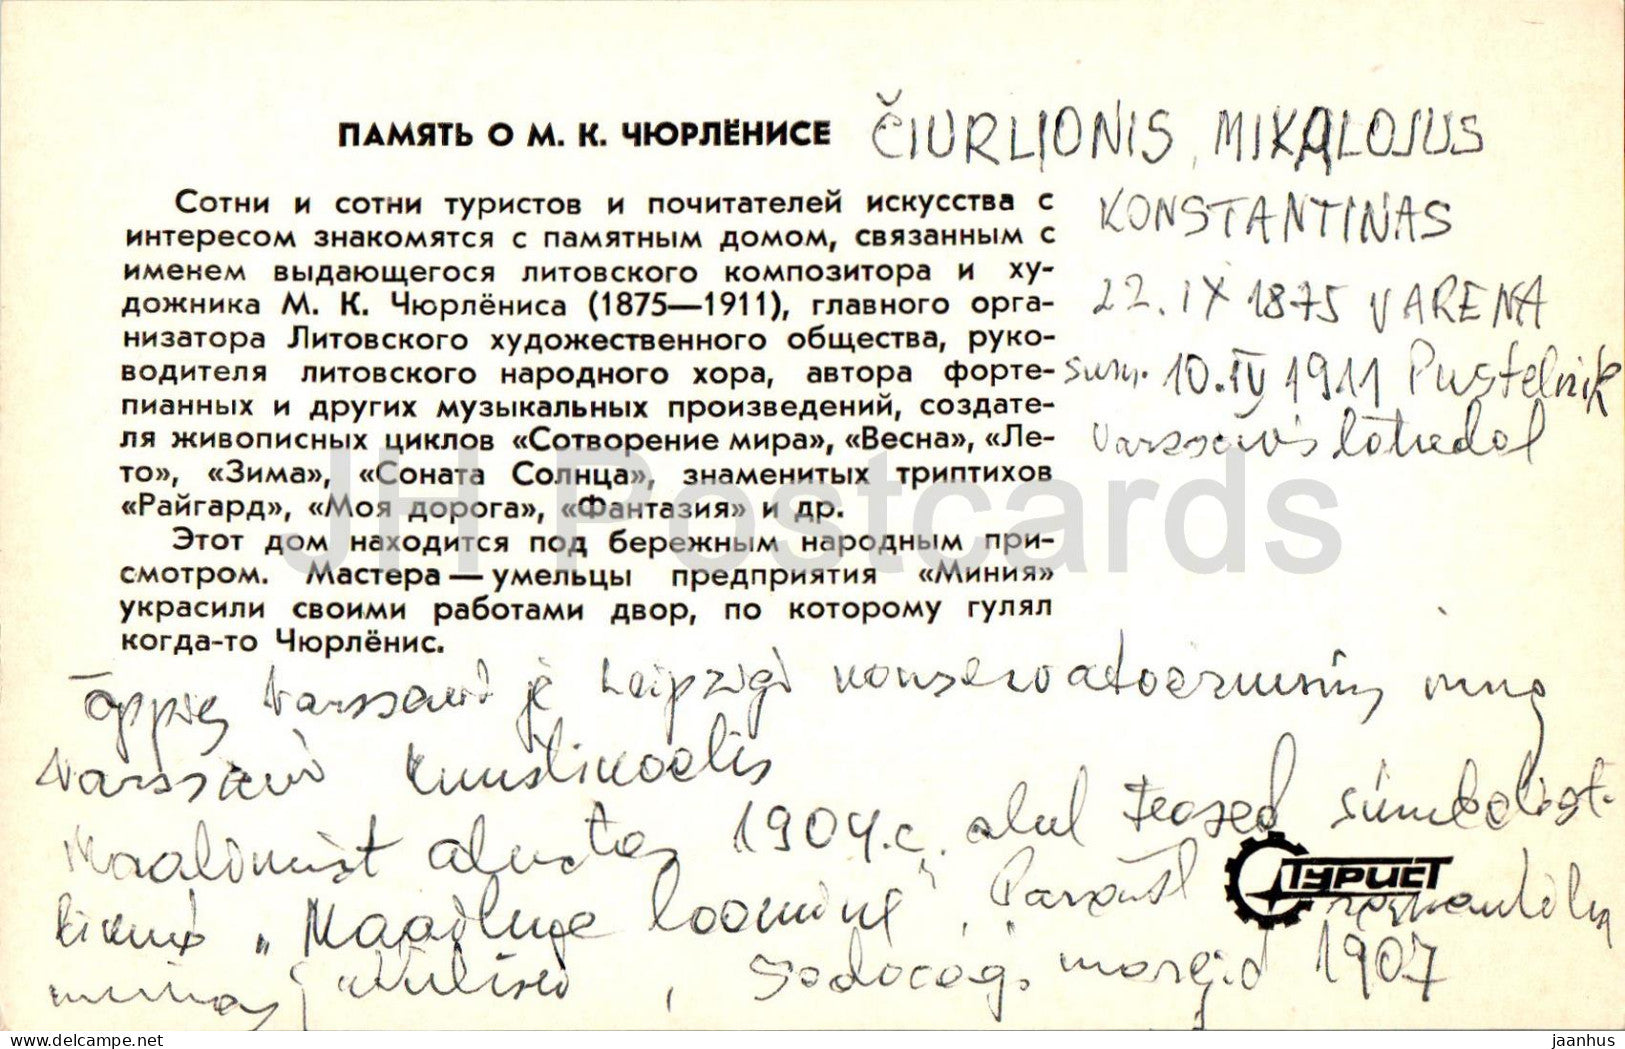 ПАМЯТЬ О М. К. ЧЮРЛЁНИСЕ
Сотни и сотни туристов и почитателей искусства с
интересом знакомятся с памятным домом, связанным с
именем выдающегося литовского композитора и ху-
дожника М. К. Чюрлёниса (1875—1911), главного орга-
низатора Литовского художественного общества, руко-
водителя литовского народного хора, автора форте-
пианных и других музыкальных произведений, создате-
ля живописных циклов «Сотворение мира», «Весна», «Ле-
то», «Зима», «Соната Солнца», знаменитых триптихов
«Райгард», «Моя дорога», «Фантазия» и др.
Этот дом находится под бережным народным при-
смотром. Мастера — умельцы предприятия «Миния»
украсили своими работами двор, по которому гулял
когда-то Чюрлёнис.
ČIURLIONIS, MIKALOJUS
KONSTANTINAS
22. IX 1875 VARENA
surn. 10. IV 1911 Pustelnik
Varssavis lähedal
õppis Varssavi ja Leipzigi konservatooriumis ning
Varssavi kunstikoolis
Maalimist alustas 1904. a. Teosed sümbolist-
likud „Maailma loomine", Pärast
1907
ТУРИСТ
JH Postcards
www.delcampe.net
jaanhus